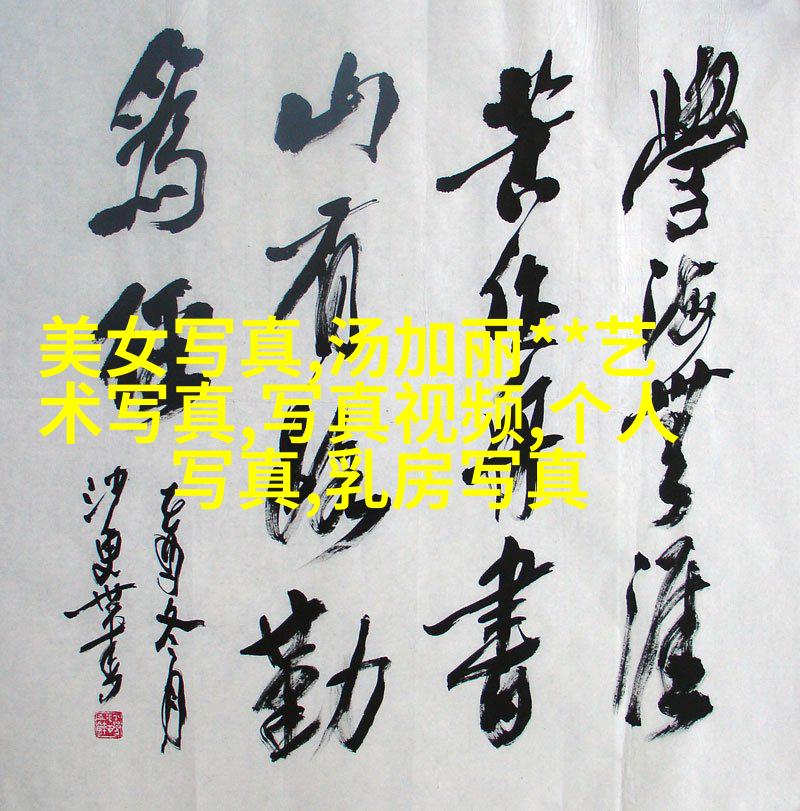 學海無涯
苦作舟書
山有路勤
為徑
乙酉冬月
沙更世書
美女写真,汤加丽**艺
术写真,写真视频,个人
写真,乳房写真